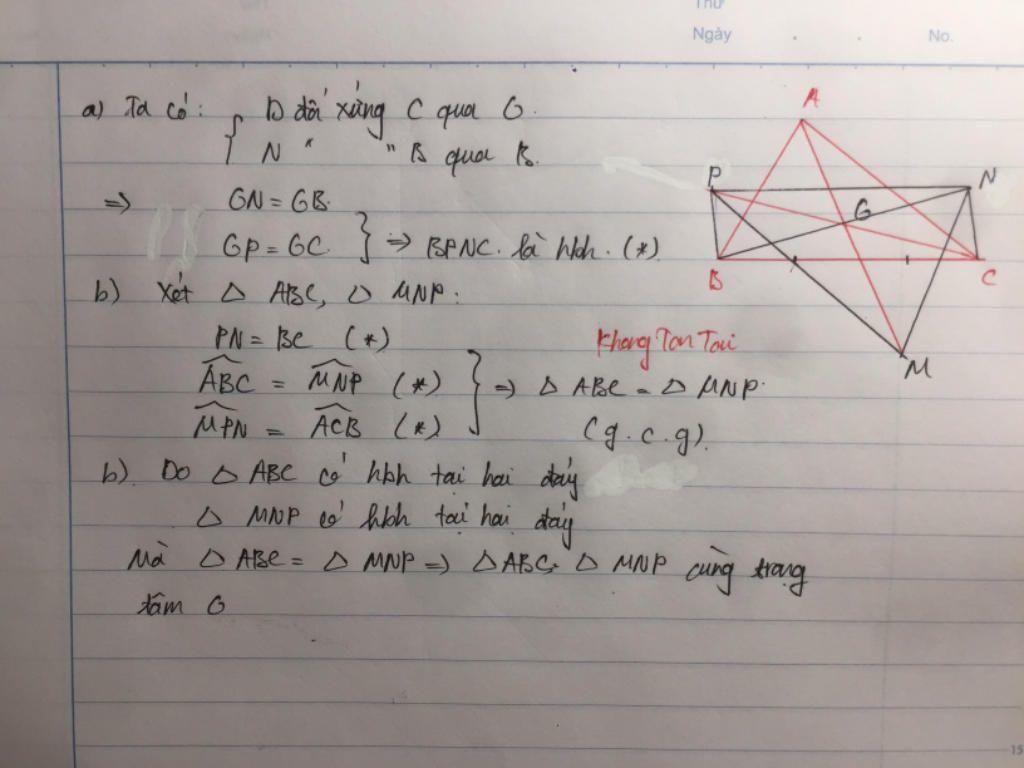 Thứ
Ngày . . No.
a) Ta có: { D đối xứng C qua G.
N " " B qua B.
=> GN = GB.
GP = GC. } => BPNC. là hbh. (*)
b) Xét △ ABC, △ MNP:
PN = BC (*)
ABC = MNP (*) } => △ ABC = △ MNP.
MPN = ACB (*) (g.c.g).
b). Do △ ABC có hbh tại hai đáy
△ MNP có hbh tại hai đáy
Mà △ ABC = △ MNP => △ABC, △ MNP cùng trạng
tâm G
A
P
N
G
B
C
Khong Ton Tai
M
15